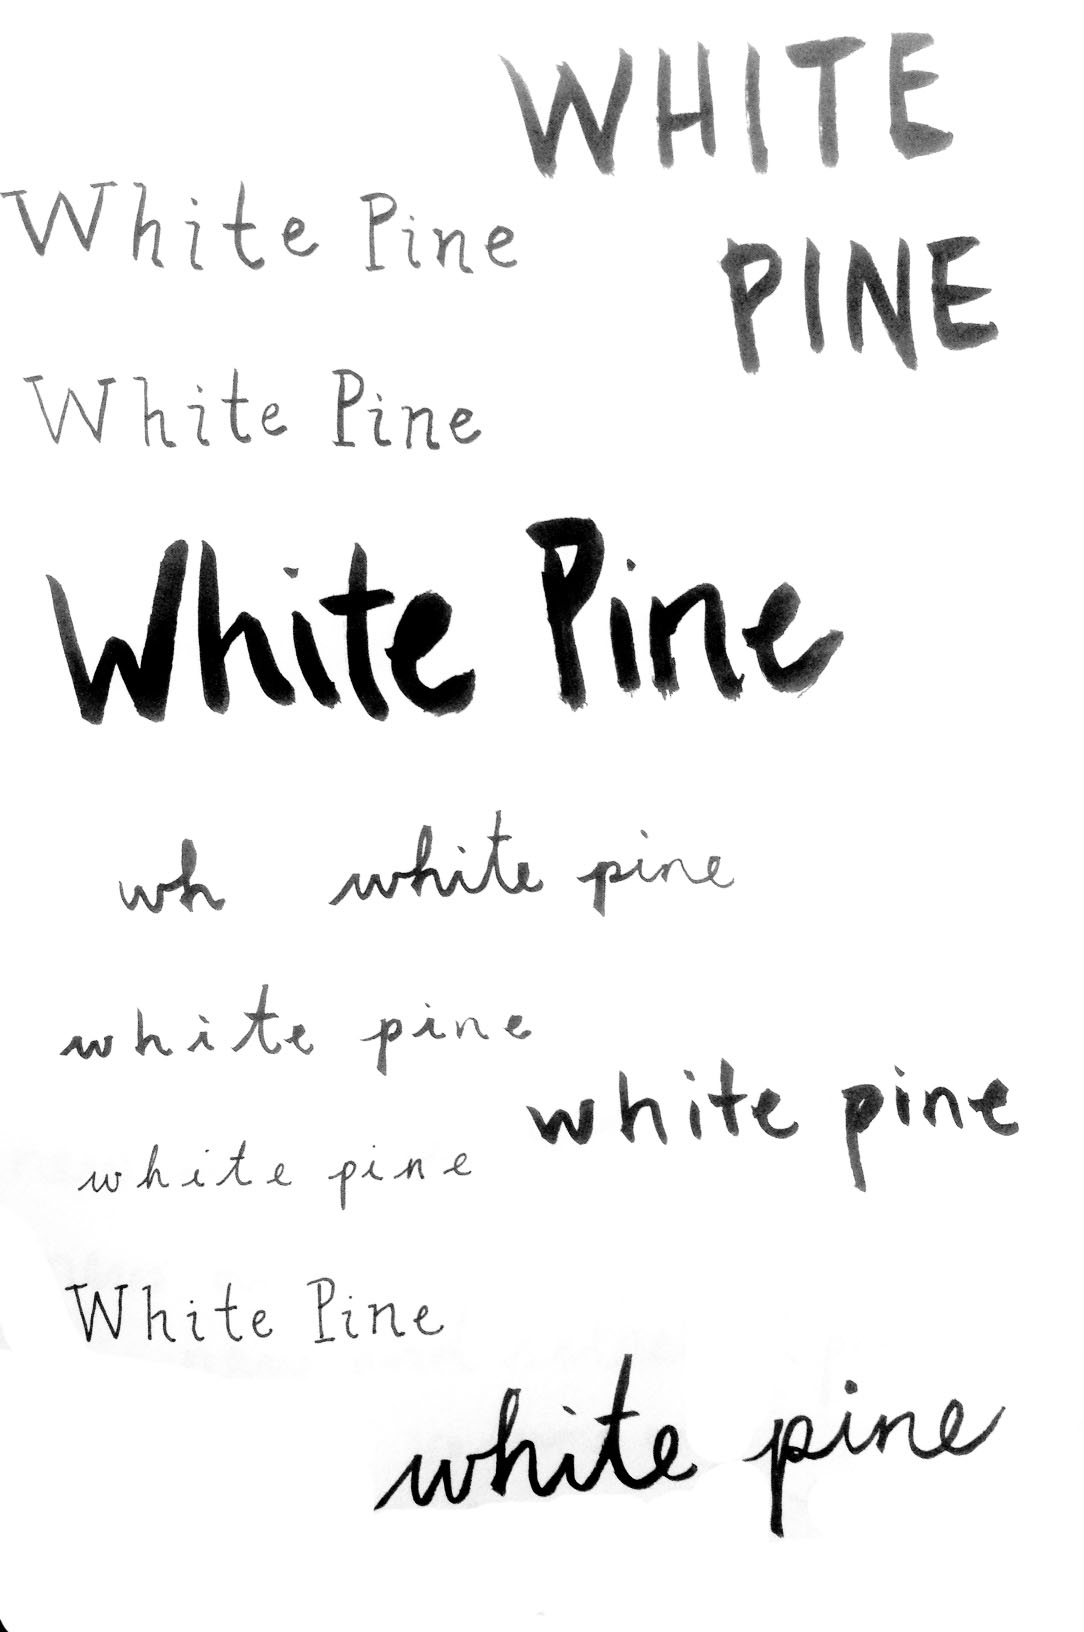 WHITE
White Pine
PINE
White Pine
White Pine
wh white pine
white pine
white pine
white pine
White Pine
white pine